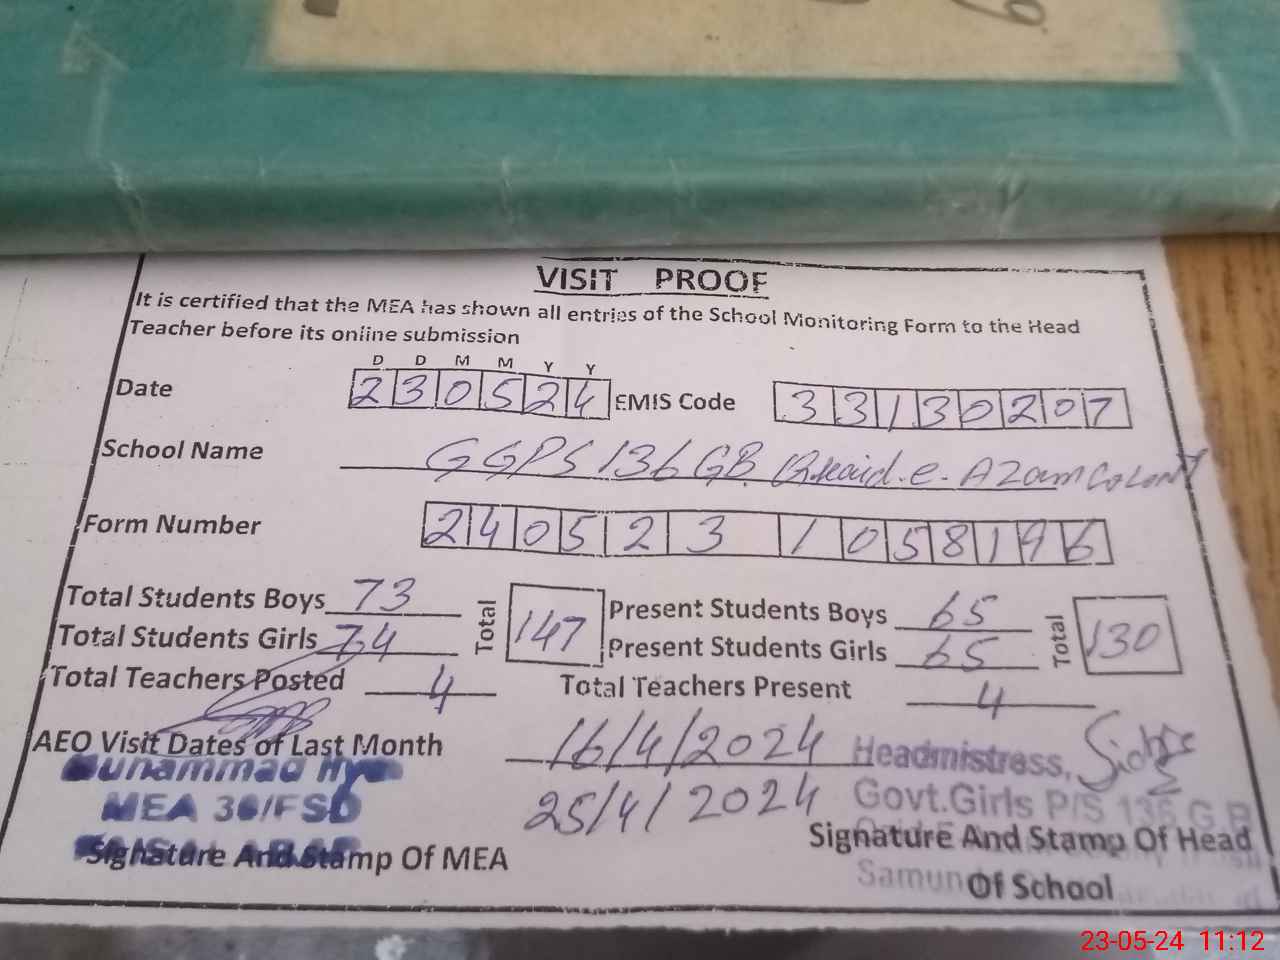 VISIT PROOF
It is certified that the MEA has shown all entries of the School Monitoring Form to the Head
Teacher before its online submission
D D M M Y Y
Date 230524 EMIS Code 33130207
School Name GGPS 136 GB Quaid.e.Azam Colony
Form Number 2405231058196
Total Students Boys 73 Total 147 Present Students Boys 65 Total 130
Total Students Girls 74 Present Students Girls 65
Total Teachers Posted 4 Total Teachers Present 4
AEO Visit Dates of Last Month 16/4/2024
25/4/2024
Muhammad
MEA 36/FSD
Signature And Stamp Of MEA
Headmistress,
Govt.Girls P/S 136 G.B
Signature And Stamp Of Head
Of School
23-05-24 11:12